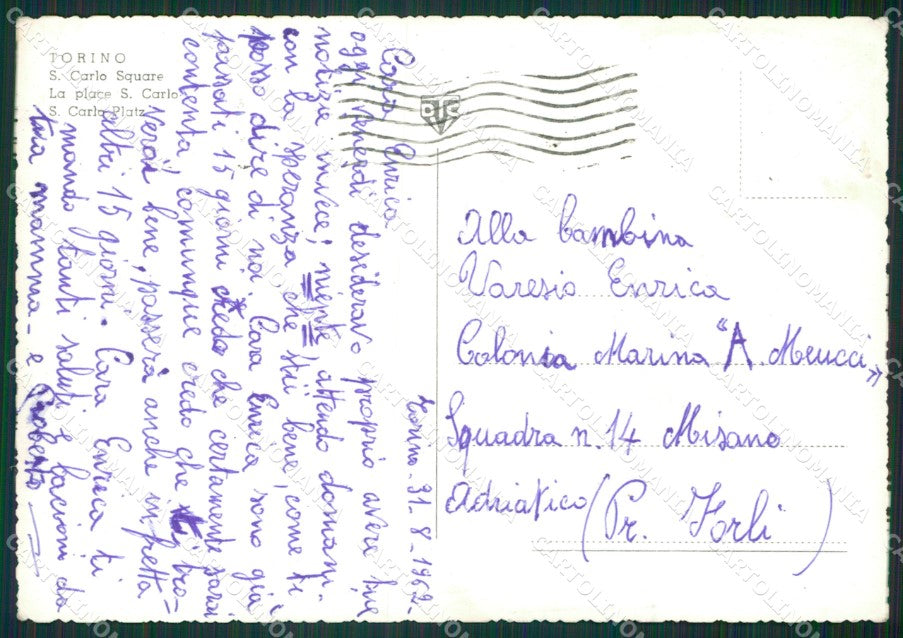 TORINO
S. Carlo Square
La place S. Carlo
S. Carlo Platz
Torino - 31-8-1962-
Cara Enrica
oggi venerdi desideravo proprio avere tue
notizie invece, niente attendo domani.
con la speranza che stii bene, come ti
posso dire di noi. Cara Enrica sono già
passati 15 giorni credo che certamente sarai
contenta, comunque credo che ti tro-
verai bene, passerà anche in fretta
altri 15 giorni. Cara Enrica ti
mando tanti saluti e bacioni da
tua mamma - e Roberto
Alla bambina
Varesio Enrica
Colonia Marina "A. Meucci"
Squadra n. 14 Misano
Adriatico (Pr. Forlì)
CARTOLINOMANIA